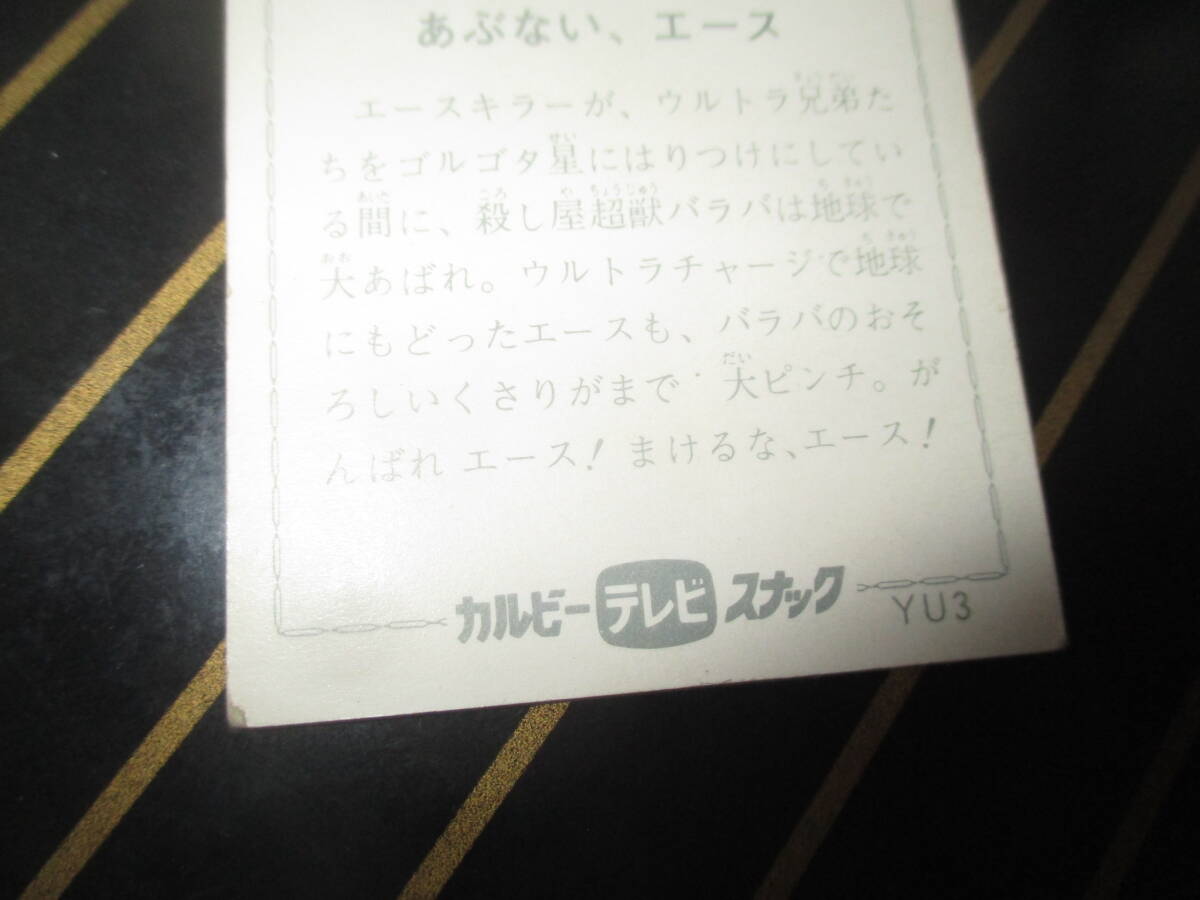 あぶない、エース
エースキラーが、ウルトラ兄弟た
ちをゴルゴタ星にはりつけにしてい
る間に、殺し屋超獣バラバは地球で
大あばれ。ウルトラチャージで地球
にもどったエースも、バラバのおそ
ろしいくさりがまで大ピンチ。が
んばれ エース! まけるな、エース!
カルビー テレビ スナック YU3